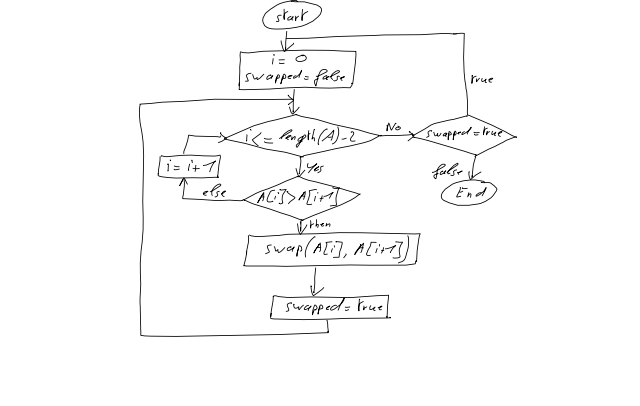 start
i = 0
swapped = false
i <= length(A)-2
No
swapped = true
true
false
End
Yes
i = i+1
else
A[i] > A[i+1]
then
swap(A[i], A[i+1])
swapped = true